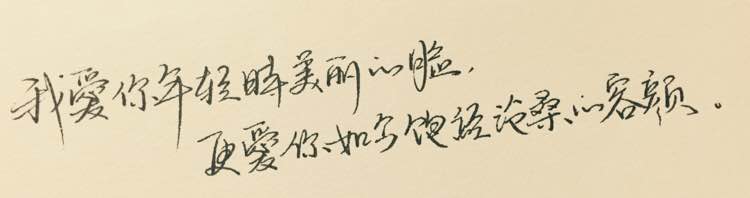 我愛你年轻时美丽的脸，
更愛你如今饱经沧桑的容颜。